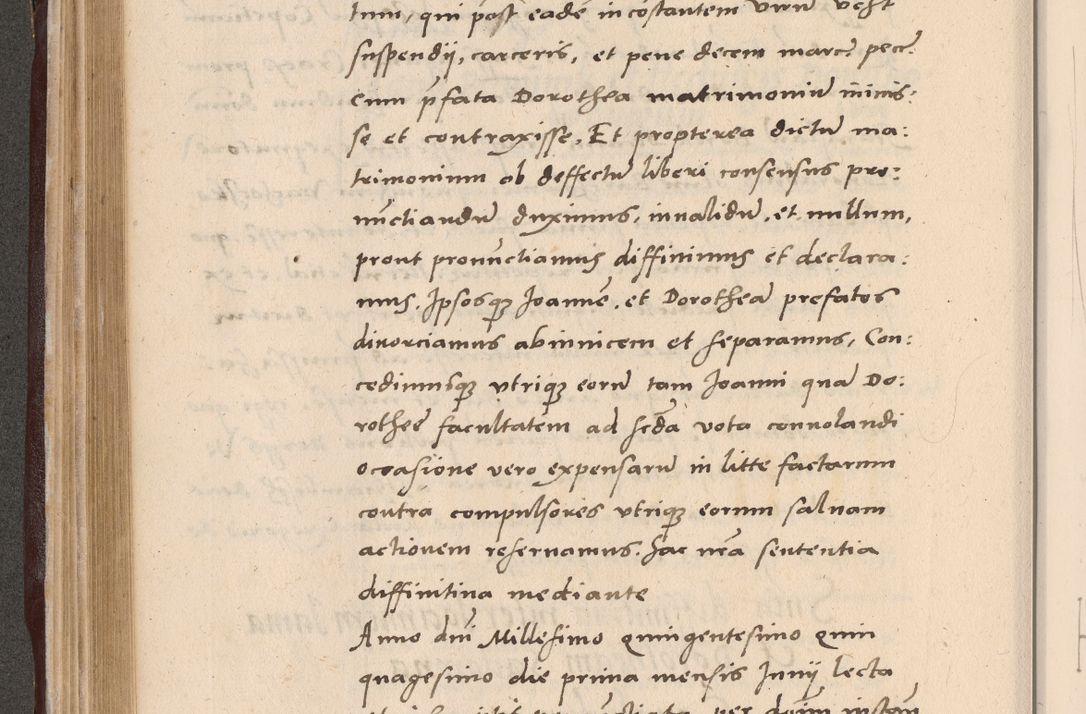 tum, qui post eadē in costantem virū
suspendij, carceris, et pene decem marc: pec:
cum p̄fata Dorothea matrimoniū iniuis:
se et contraxisse, Et propterea dictū ma:
trimonium ob deffectū liberi consensus pro:
nūctiandū duximus, inualidū, et nullum,
prout pronūctiamus diffinimus et declara:
mus, Ipsosq; Ioannē, et Dorotheā prefatos
diuorciamus abinuicem et separamus, Con:
cedimusq; vtriq; eorū tam Ioanni quā Do:
rotheē facultatem ad scd̄a vota conuolandi
occasione vero expensarū in litte factarum
contra compulsores vtriq; eorum saluam
actionem reseruamus. hac nr̄a sententia
diffinitiua mediante
Anno dnī Millesimo quingentesimo quin
quagesimo die prima mensis Iunij lecta